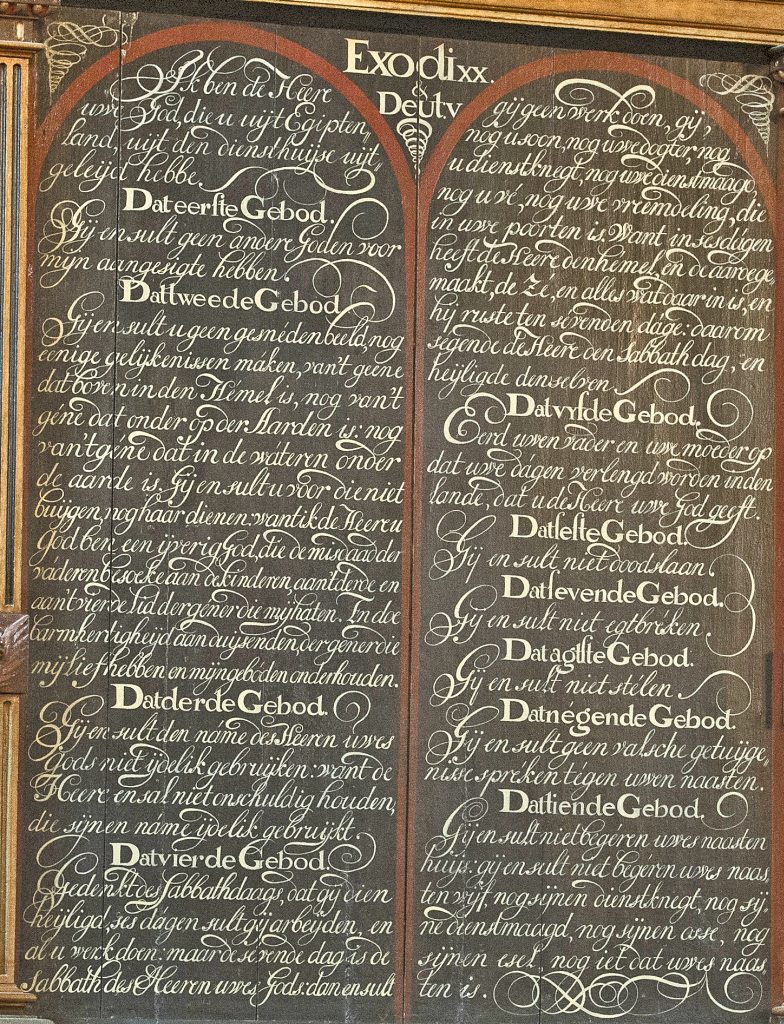 Exodi xx.
&
Deut v
Ik ben de Heere
uwe God, die u uijt Egipten
land, uijt den diensthuijse uijt,
geleijd hebbe.
Dat eerste Gebod.
Gij en sult geen andere Goden voor
mijn aangesigte hebben.
Dat tweede Gebod
Gij en sult u geen gesneden beeld, nog
eenige gelijkenissen máken, van't geene
dat boven in den Hémel is, nog van't
géne dat onder op der Aarden is: nog
van't gene dat in de wáteren onder
de aarde is. Gij en sult u voor die niet
buijgen, nog haar dienen: want ik de Heere u
God ben een ijverig God, die de misdaad der
vaderen besoeke aan de kinderen, aan't derde en
aan't vierde lid dergéner die mij haten. En doe
barmhertigheijd aan duijsenden, dergener die
mij lief hebben en mijn geboden onderhouden.
Dat derde Gebod.
Gij en sult den náme des Heeren uwes
Gods niet ijdelik gebruijken: want de
Heere en sal niet onschuldig houden,
die sijnen náme ijdelik gebruijkt.
Dat vierde Gebod.
Gedenkt des Sabbath daags, dat gy dien
heijligd, ses dagen sult gij arbeijden, en
al u werk doen: maar de sevende dag is de
Sabbath des Heeren uwes Gods: dan en sult
gij geen werk doen, gij,
nog u soon, nog uwe dogter, nog
u dienstknegt, nog uwe dienstmaagd,
nog u vé, nog uwe vreemdeling, die
in uwe poorten is. Want in ses dagen
heeft de Heere den hemel, en de aarde ge
maakt, de Zé, en alles wat daar in is, en
hij ruste ten sévenden dage: daarom
segende de Heere den Sabbath dag, en
heijligde denselven.
Dat vyfde Gebod.
Eerd uwen vader en uwe moeder op
dat uwe dagen verlengd worden in den
lande, dat u de Heere uwe God geeft.
Dat seste Gebod.
Gij en sult niet doodslaan.
Dat sevende Gebod.
Gy en sult niet egtbréken.
Dat agtste Gebod.
Gij en sult niet stélen
Dat négende Gebod.
Gij en sult geen valsche getuijge,
nisse spréken tégen uwen naasten.
Dat tiende Gebod.
Gij en sult niet begeren uwes naasten
huijs: gij en sult niet begéren uwes naas,
ten wijf, nog sijnen dienstknegt, nog sij,
ne dienstmaagd, nog sijnen osse, nog
sijnen esel, nog iet dat uwes naas,
ten is.